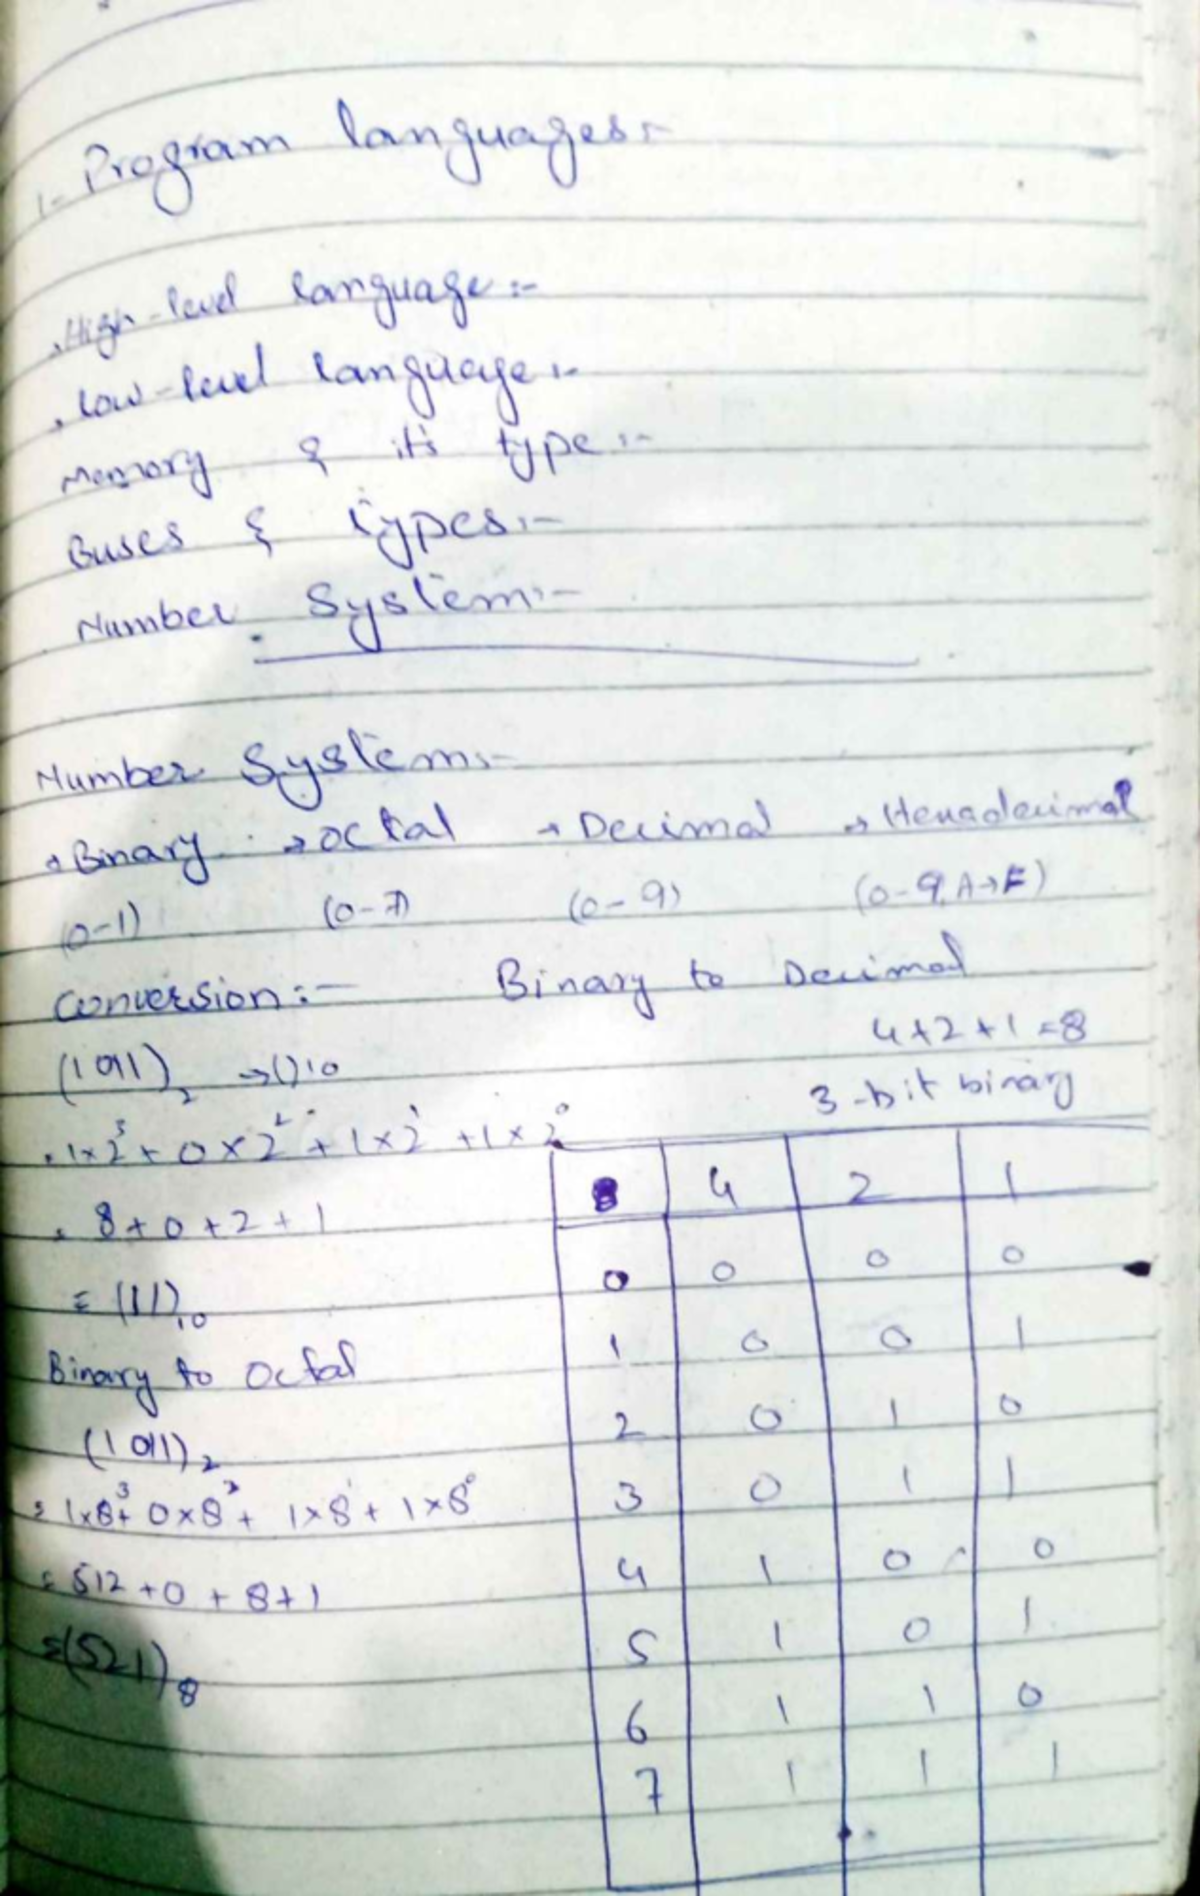 1- Program languages:-
. High-level language :-
. Low-level language :-
Memory & its type :-
Buses & types :-
Number System :-
Number System :-
→ Binary → Octal → Decimal → Hexadecimal
(0-1) (0-7) (0-9) (0-9, A→F)
Conversion :- Binary to Decimal
(1011)₂ → ()10
4+2+1 =8
3-bit binary
. 1×2³ + 0×2² + 1×2¹ + 1×2⁰
= 8+0+2+1
= (11)₁₀
Binary to Octal
(1011)₂
= 1×8³+ 0×8²+ 1×8¹+ 1×8⁰
= 512 +0 + 8+1
=(521)₈
8 4 2 1
0 0 0 0
1 0 0 1
2 0 1 0
3 0 1 1
4 1 0 0
5 1 0 1
6 1 1 0
7 1 1 1